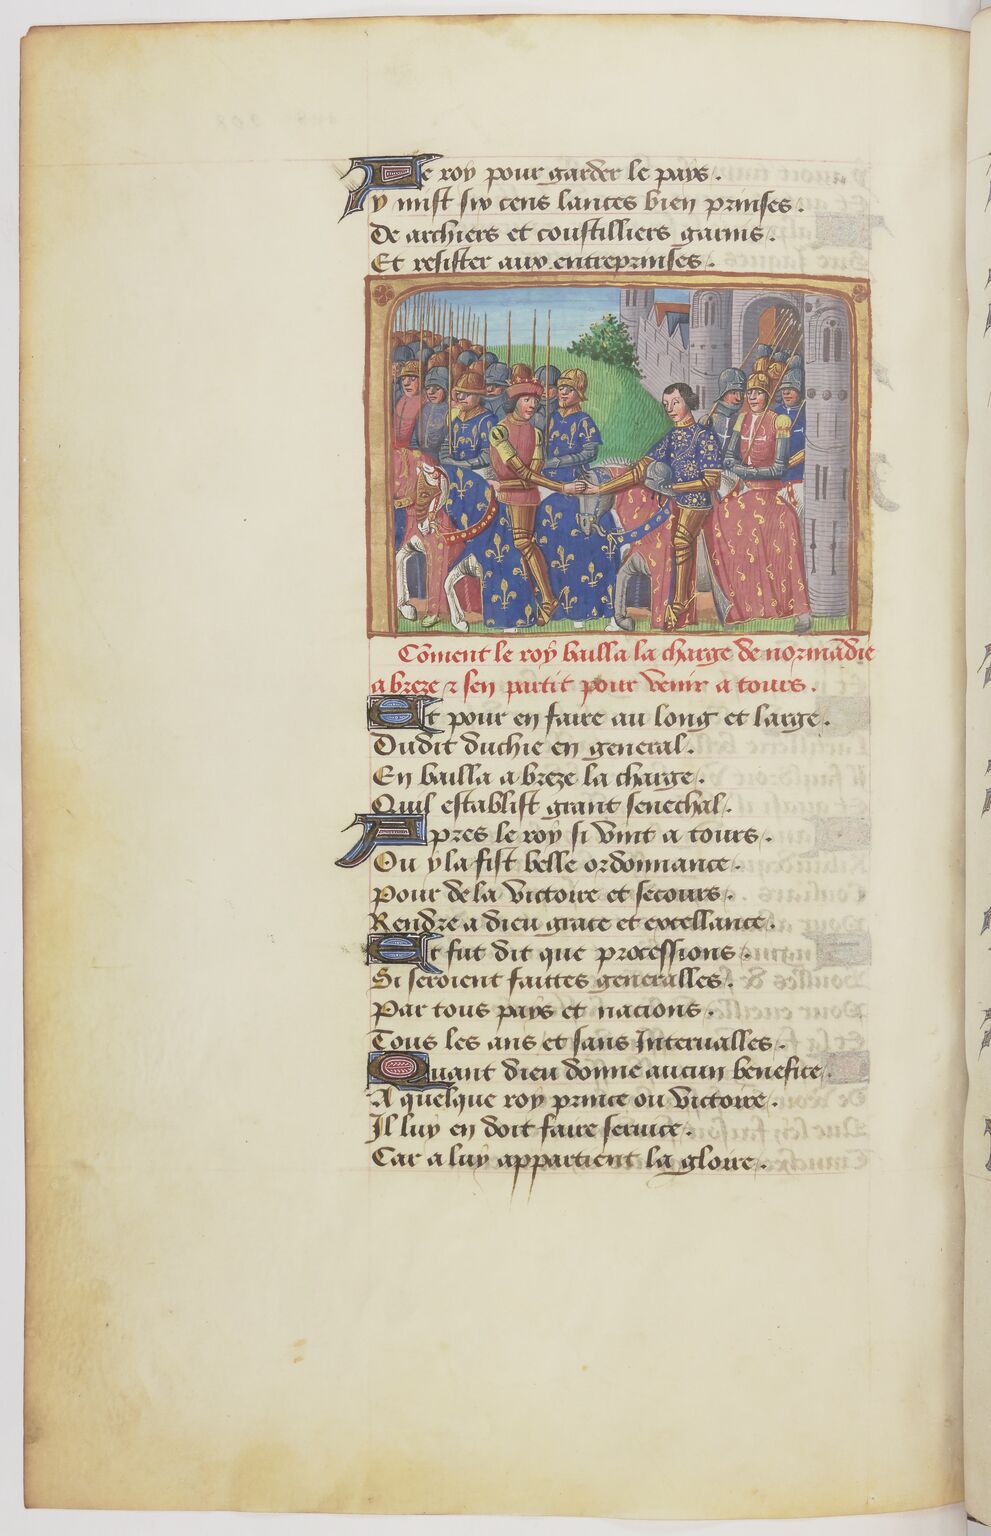 Le roy pour garder le pays.
Y mist six cens lances bien prinses.
De archiers et coustilliers garnis.
Et resister aux entreprinses.
Cõment le roy bailla la charge de normãdie
a breze ⁊ sen partit pour venir a tours.
Et pour en faire au long et large.
Dudit duchie en general.
En bailla a breze la charge.
Quil establist grant seneschal.
Apres le roy si vint a tours.
Ou y la fist belle ordonnance.
Pour de la victoire et secours.
Rendre a dieu grace et excellance.
Et fut dit que processions.
Si seroient faittes generalles.
Par tous pays et nacions.
Tous les ans et sans Interualles.
Quant dieu donne aucun benefice.
A quelque roy prince ou victoire.
Il luy en doit faire seruice.
Car a luy appartient la gloire.